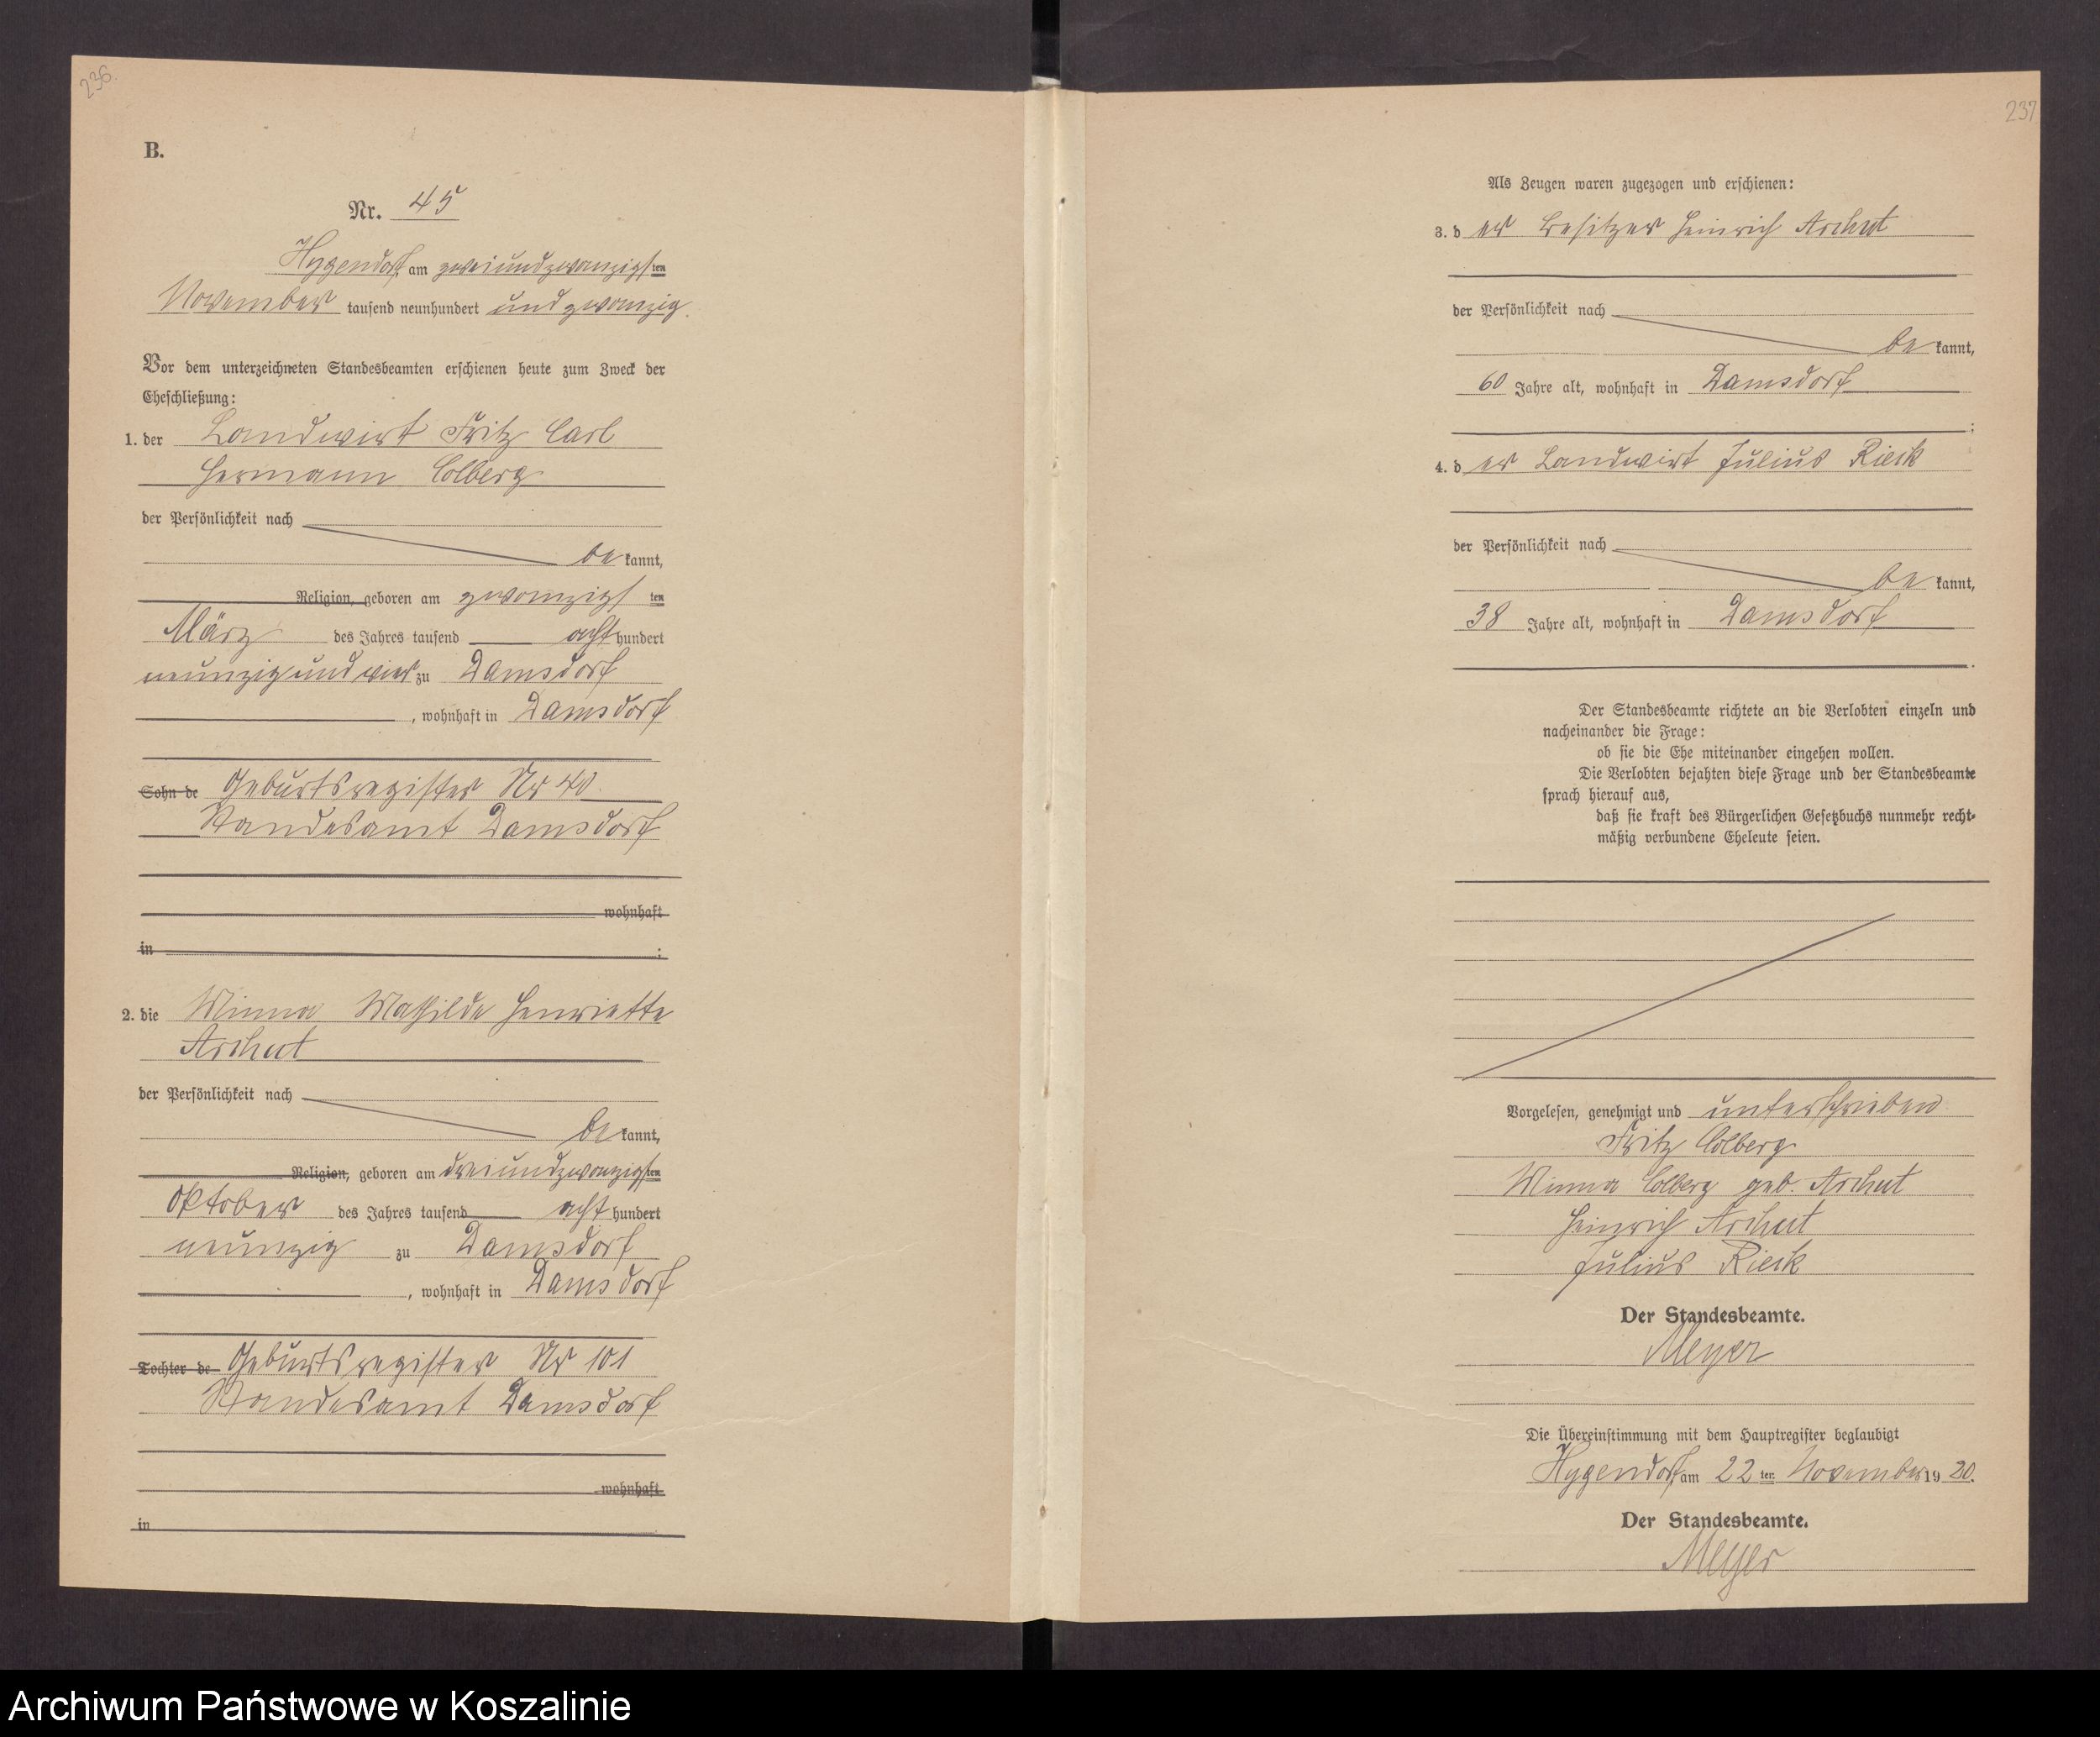 236.
B.
Nr. 45
Hygendorf, am zweiundzwanzigsten
November tausend neunhundert und zwanzig.
Vor dem unterzeichneten Standesbeamten erschienen heute zum Zweck der
Eheschließung:
1. der Landwirt Fritz Carl
Hermann Colberg
der Persönlichkeit nach
be kannt,
Religion, geboren am zwanzigsten
März des Jahres tausend acht hundert
neunzig und vier zu Damsdorf
, wohnhaft in Damsdorf
Sohn de Geburtsregister Nr 40
Standesamt Damsdorf
wohnhaft
in ;
2. die Minna Mathilde Henriette
Archut
der Persönlichkeit nach
be kannt,
Religion, geboren am dreiundzwanzigsten
Oktober des Jahres tausend acht hundert
neunzig zu Damsdorf
, wohnhaft in Damsdorf
Tochter de Geburtsregister Nr 101
Standesamt Damsdorf
wohnhaft
in
237
Als Zeugen waren zugezogen und erschienen:
3. der Besitzer Heinrich Archut
der Persönlichkeit nach
be kannt,
60 Jahre alt, wohnhaft in Damsdorf
;
4. der Landwirt Julius Rieck
der Persönlichkeit nach
be kannt,
38 Jahre alt, wohnhaft in Damsdorf
.
Der Standesbeamte richtete an die Verlobten einzeln und
nacheinander die Frage:
ob sie die Ehe miteinander eingehen wollen.
Die Verlobten bejahten diese Frage und der Standesbeamte
sprach hierauf aus,
daß sie kraft des Bürgerlichen Gesetzbuchs nunmehr recht-
mäßig verbundene Eheleute seien.
Vorgelesen, genehmigt und unterschrieben
Fritz Colberg
Minna Colberg geb. Archut
Heinrich Archut
Julius Rieck
Der Standesbeamte.
Meyer
Die Übereinstimmung mit dem Hauptregister beglaubigt
Hygendorf, am 22 ten November 1920.
Der Standesbeamte.
Meyer
Archiwum Państwowe w Koszalinie